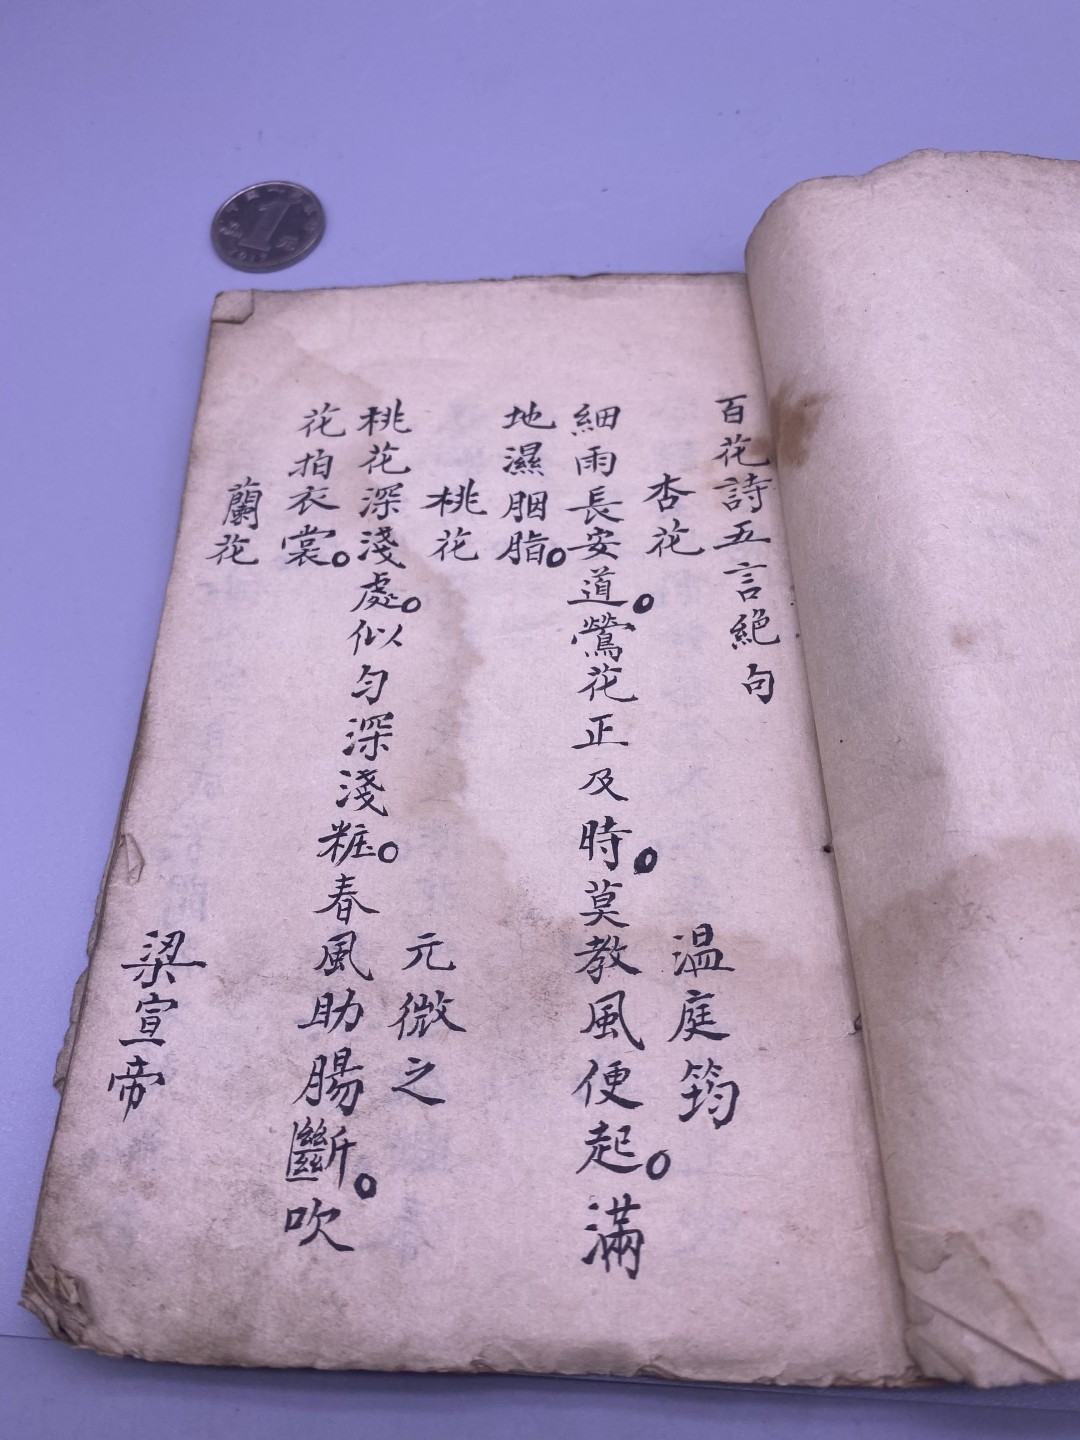 百花詩五言絕句
杏花 温庭筠
細雨長安道。鶯花正及時。莫教風便起。滿
地濕胭脂。
桃花 元微之
桃花深淺處。似匀深淺粧。春風助腸斷。吹
花拍衣裳。
蘭花 梁宣帝
1
元